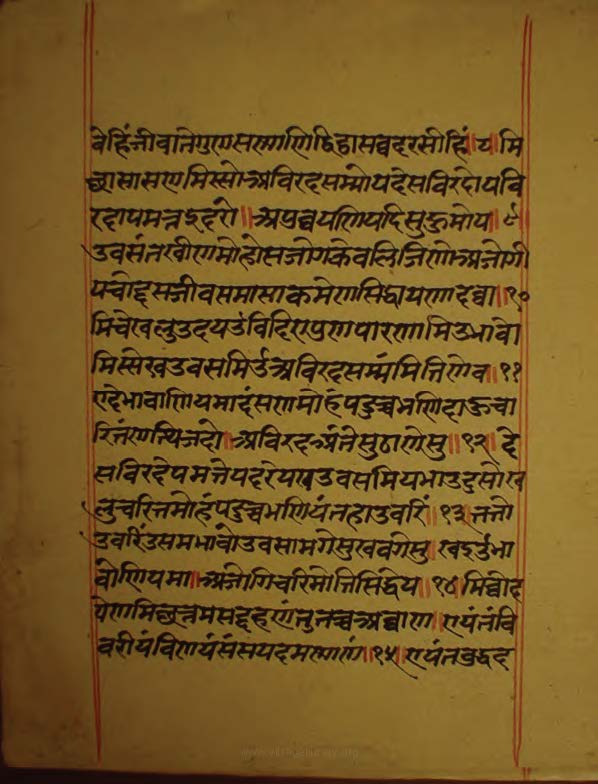 वेहिंजीवातेगुणसरणाणिद्दिहासव्वदरसीहिं॥८॥मि
छासासणमिस्सोअविरदसम्मोयदेसविरदोयवि
रदापमत्तइदरो॥अपुव्वयणियदिसुऊमोय॥९॥
उवसंतखीणमोहोसजोगकेवलिजिणोअजोगी
यचोद्दसजीवसमासाकमेणसिद्धायणादव्वा॥१०
मिचेखलुउदयउविदिएपुणपारणामिउभावो
मिस्सेखउवसमिउअविरदसम्मंमितिणेव॥११
एदेभावाणियमादंसणमोहंपडुच्चभणिदाऊचा
रित्तंणत्थिजदो॥अविरदअंतेसुठाणेसु॥१२॥दे
सविरदेपमत्तेयदरेयखउवसमियभाउदुसोख
लुचरित्तमोहंपडुच्चभणियंतहाउवरिं॥१३॥तत्तो
उवरिंउसमभावोउवसामगेसुखवगेसु॥खइउभा
वोणियमा॥अजोगिचरिमोत्तिसिद्धेय॥१४॥मिच्छोद
येणमिछत्तमसद्दहणंतुतच्चअच्छाण॥एयंतंवि
वरीयंविणयंसंसयदमणाणं॥१५॥एयंतबुद्धद